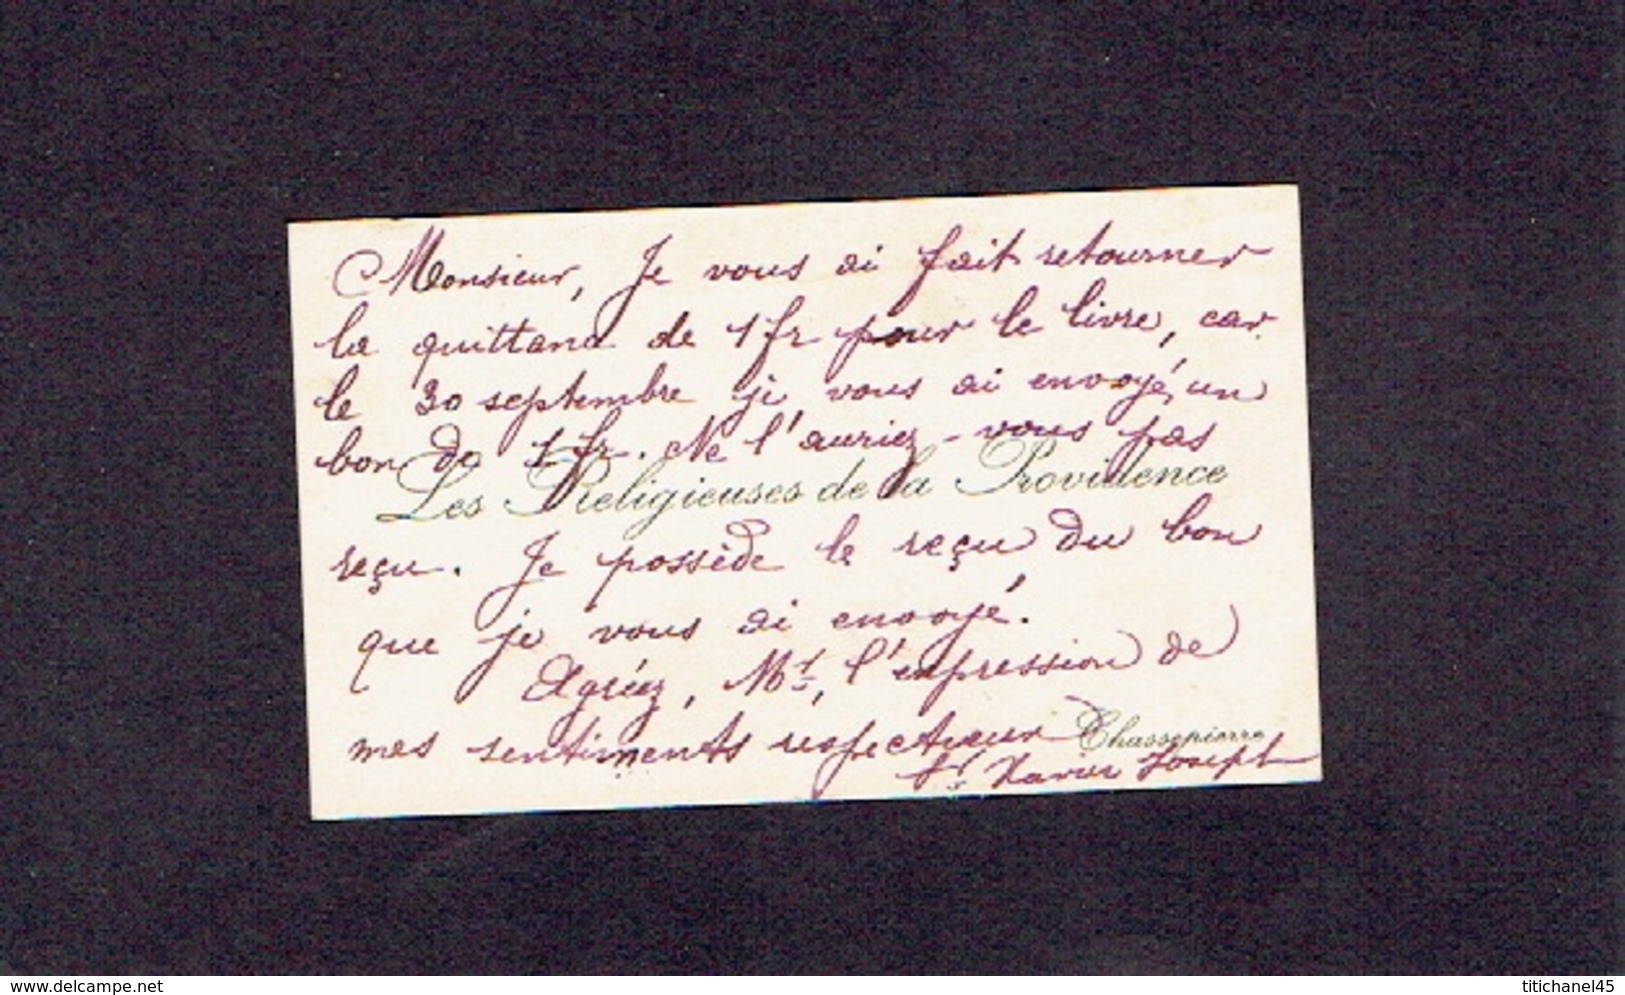 Monsieur, Je vous ai fait retourner
la quittance de 1 fr pour le livre, car
le 30 septembre je vous ai envoyé un
bon de 1 fr. Ne l'auriez-vous pas
Les Religieuses de la Providence
reçu. Je possède le reçu du bon
que je vous ai envoyé.
Agréez, Mr, l'expression de
mes sentiments respectueux
Chassepierre
Sr Xavier Joseph
www.delcampe.net
titichanel45